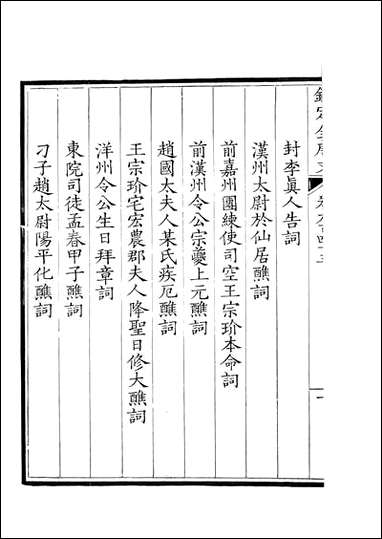 封李眞人告詞
漢州太尉於仙居醮詞
前嘉州團練使司空王宗玠本命詞
前漢州令公宗夔上元醮詞
趙國太夫人某氏疾厄醮詞
王宗玠宅宏農郡夫人降聖日修大醮詞
洋州令公生日拜章詞
東院司徒孟春甲子醮詞
刁子趙太尉陽平化醮詞